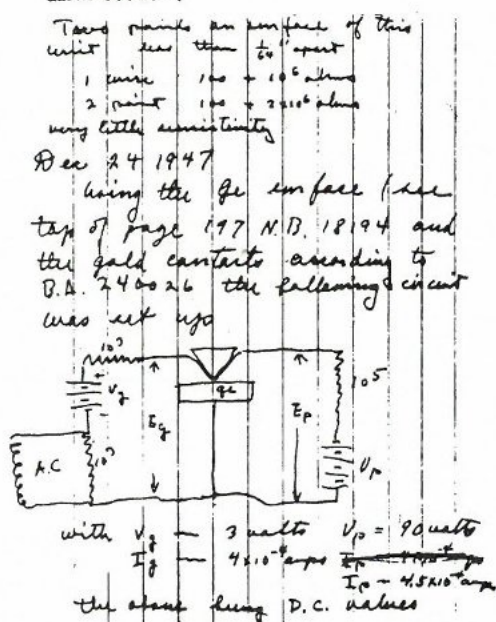 Two points on surface of this
unit less than 1/64" apart
1 wire 100 + 10⁶ ohms
2 point 100 + 2x10⁶ ohms
very little sensitivity
Dec 24 1947
Using the Ge surface (see
top of page 197 N.B. 18194 and
the gold contacts according to
B.A. 240026 the following circuit
was set up
10³
Ge
10⁵
Vg
Eg
Ep
A.C
10³
Vp
with Vg - 3 volts Vp = 90 volts
Ig - 4x10⁻⁴ amps
Ip - 4.5x10⁻⁴ amps
the above being D.C. values